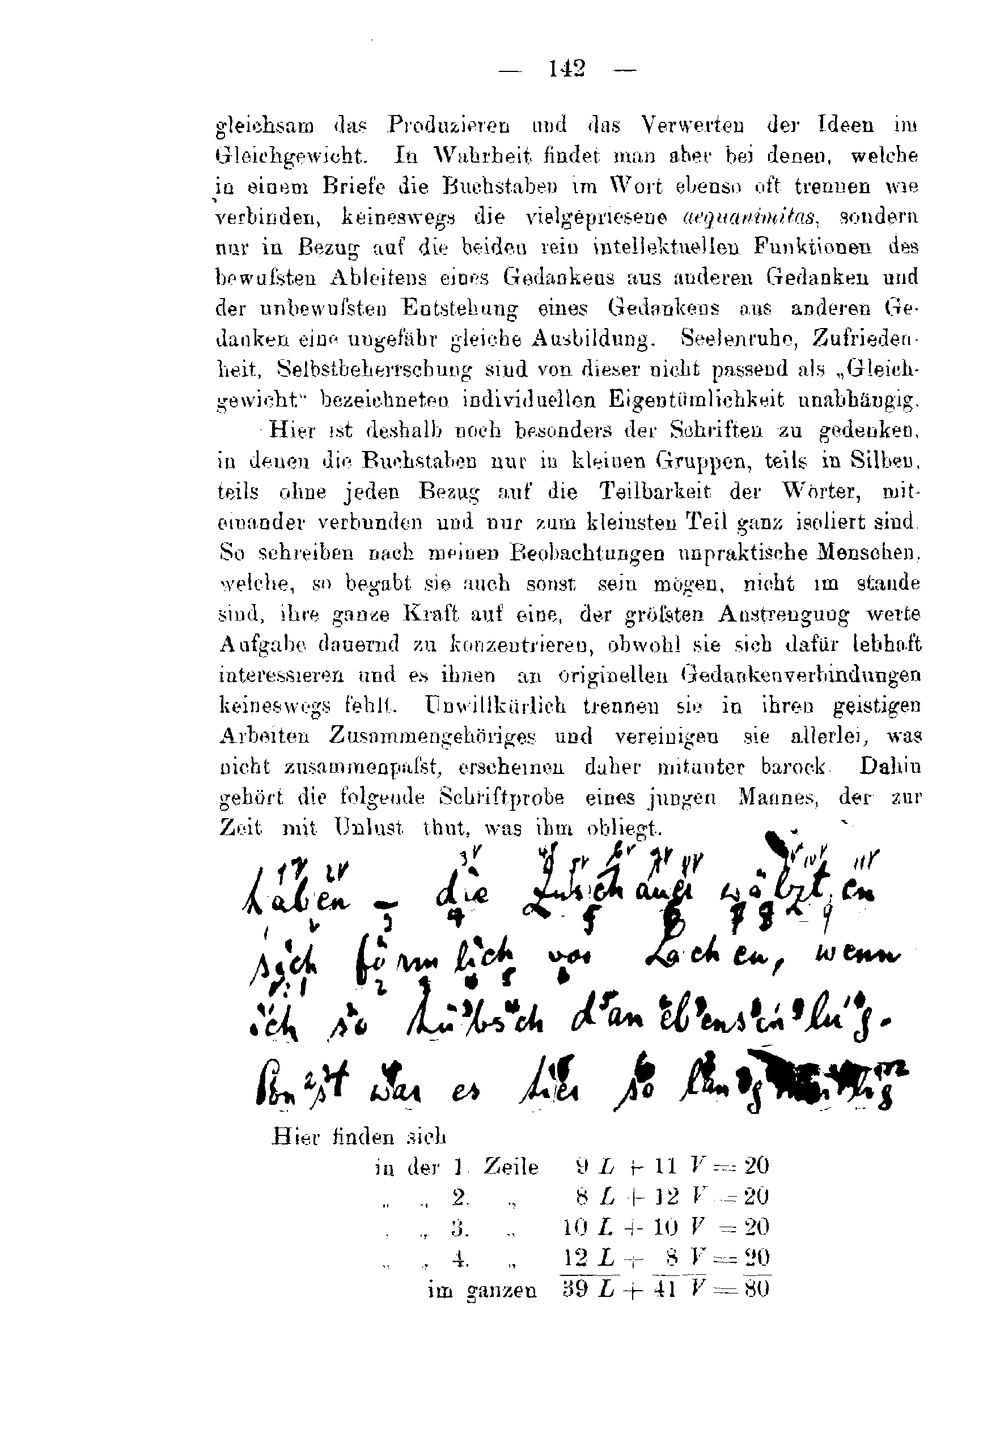 — 142 —
gleichsam das Produzieren und das Verwerten der Ideen im
Gleichgewicht. In Wahrheit findet man aber bei denen, welche
in einem Briefe die Buchstaben im Wort ebenso oft trennen wie
verbinden, keineswegs die vielgepriesene aequanimitas, sondern
nur in Bezug auf die beiden rein intellektuellen Funktionen des
bewuſsten Ableitens eines Gedankens aus anderen Gedanken und
der unbewuſsten Entstehung eines Gedankens aus anderen Ge-
danken eine ungefähr gleiche Ausbildung. Seelenruhe, Zufrieden-
heit, Selbstbeherrschung sind von dieser nicht passend als „Gleich-
gewicht“ bezeichneten individuellen Eigentümlichkeit unabhängig.
Hier ist deshalb noch besonders der Schriften zu gedenken,
in denen die Buchstaben nur in kleinen Gruppen, teils in Silben,
teils ohne jeden Bezug auf die Teilbarkeit der Wörter, mit-
einander verbunden und nur zum kleinsten Teil ganz isoliert sind.
So schreiben nach meinen Beobachtungen unpraktische Menschen,
welche, so begabt sie auch sonst sein mögen, nicht im stande
sind, ihre ganze Kraft auf eine, der gröſsten Anstrengung werte
Aufgabe dauernd zu konzentrieren, obwohl sie sich dafür lebhaft
interessieren und es ihnen an originellen Gedankenverbindungen
keineswegs fehlt. Unwillkürlich trennen sie in ihren geistigen
Arbeiten Zusammengehöriges und vereinigen sie allerlei, was
nicht zusammenpaſst, erscheinen daher mitunter barock. Dahin
gehört die folgende Schriftprobe eines jungen Mannes, der zur
Zeit mit Unlust thut, was ihm obliegt.
haben – die Zuschauer wälzten
sich förmlich vor Lachen, wenn
ich so hübsch danebenschlug.
Sonst war es hier so lang
Hier finden sich
in der 1. Zeile 9 L + 11 V = 20
„ „ 2. „ 8 L + 12 V = 20
„ „ 3. „ 10 L + 10 V = 20
„ „ 4. „ 12 L + 8 V = 20
im ganzen 39 L + 41 V = 80